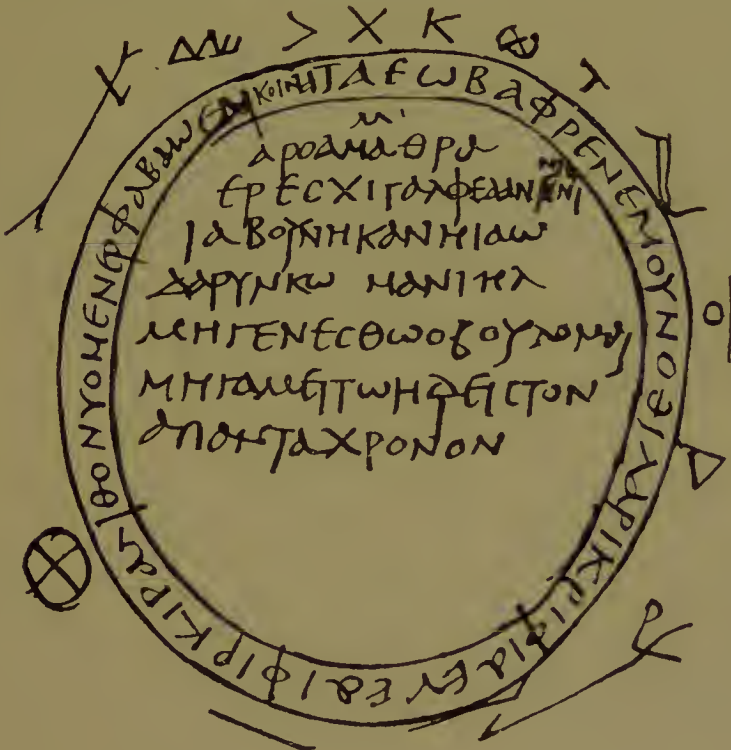 ΚΟΙΝΗΤΑΕΩΒΑΦΡΕΝΕΜΟΥΝΟΘΙΛΑΡΙΚΡΙΦΙΑΕΥΕΑΙΦΙΡΚΙΡΑΛΙΘΟΝΥΟΜΕΝΕΡΦΑΒΑΩΕΑΙ
ΑΡΟΑΜΑΘΡΑ
ΕΡΕϹΧΙΓΑΛΦΕΔΑΝ
ΙΑΒΟΥΝΗΚΑΝΗΙΑΩ
ΔΑΡΥΝΚΩ ΜΑΝΙΗΛ
ΜΗΓΕΝΕϹΘΩΟΒΟΥΛΟΜΑΙ
ΜΗΓΑΜΕΙΤΩΗΔΕΙϹΤΟΝ
ΑΠΑΝΤΑΧΡΟΝΟΝ